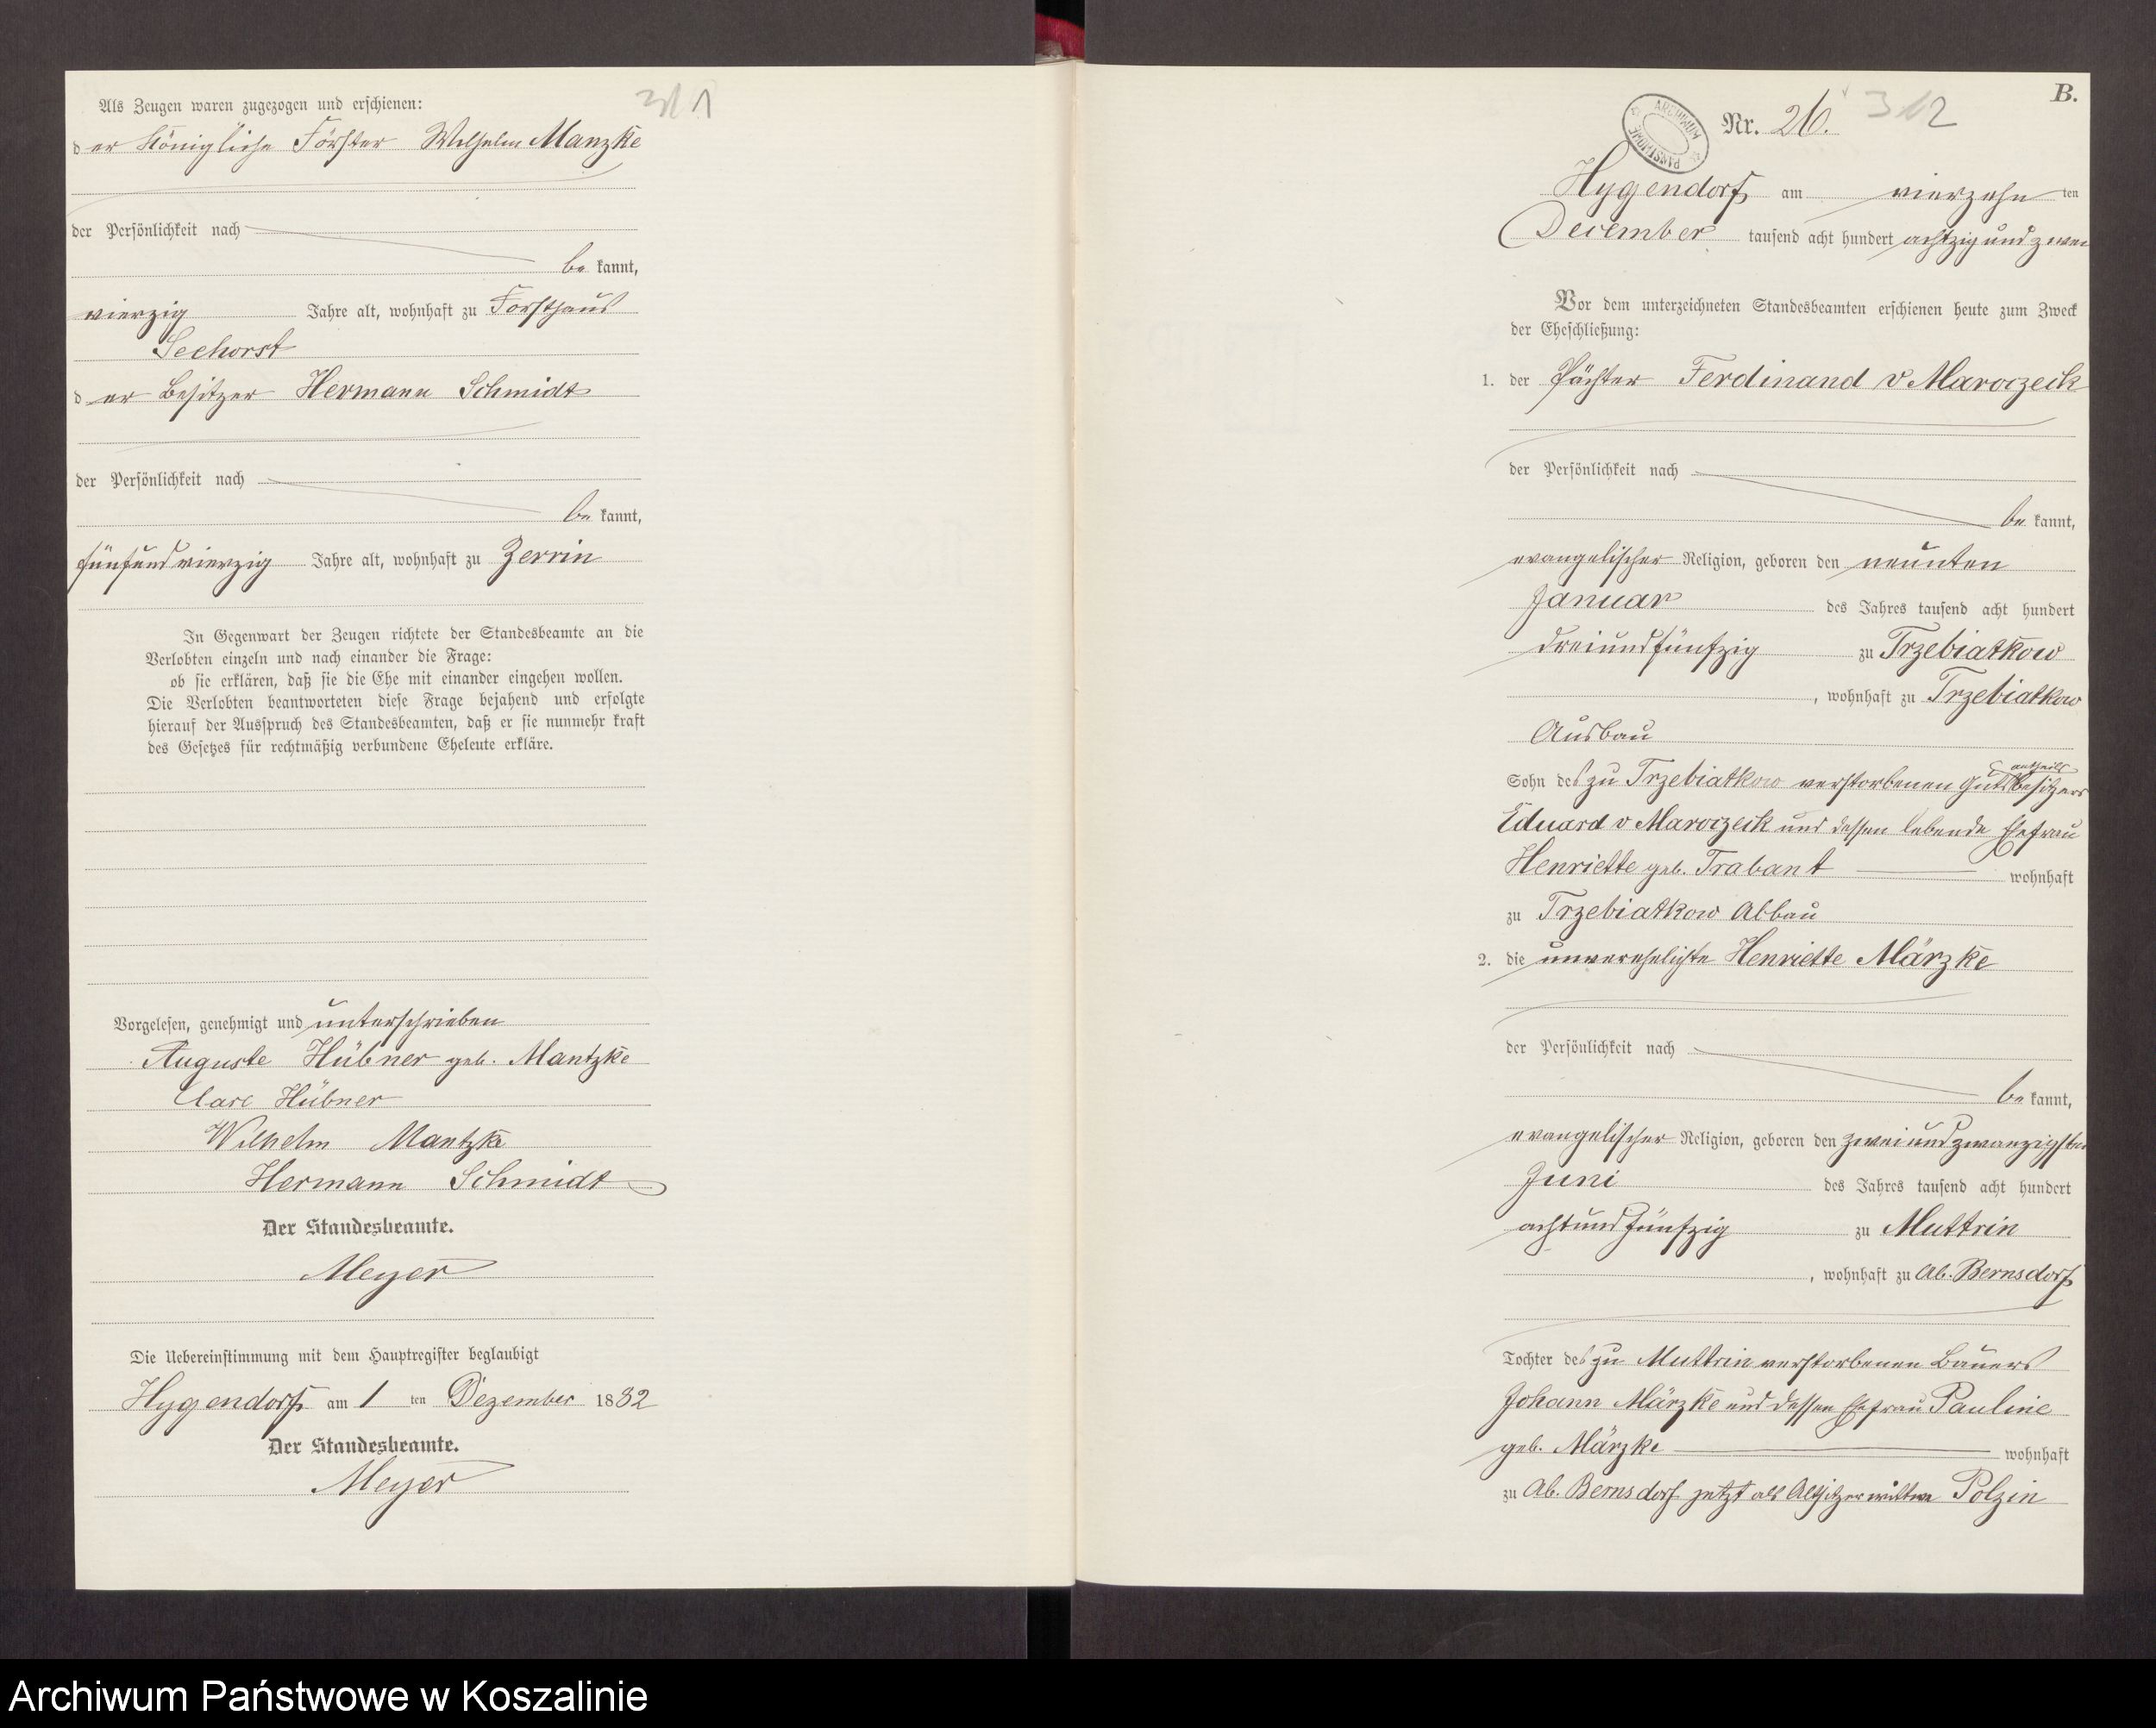 Als Zeugen waren zugezogen und erschienen:
311
der Königliche Förster Wilhelm Manzke
der Persönlichkeit nach
be kannt,
vierzig Jahre alt, wohnhaft zu Forsthaus
Seehorst
der Besitzer Hermann Schmidt
der Persönlichkeit nach
be kannt,
fünfundvierzig Jahre alt, wohnhaft zu Zerrin
In Gegenwart der Zeugen richtete der Standesbeamte an die
Verlobten einzeln und nach einander die Frage:
ob sie erklären, daß sie die Ehe mit einander eingehen wollen.
Die Verlobten beantworteten diese Frage bejahend und erfolgte
hierauf der Ausspruch des Standesbeamten, daß er sie nunmehr kraft
des Gesetzes für rechtmäßig verbundene Eheleute erkläre.
Vorgelesen, genehmigt und unterschrieben
Auguste Hübner geb. Mantzke
Carl Hübner
Wilhelm Mantzke
Hermann Schmidt
Der Standesbeamte.
Meyer
Die Uebereinstimmung mit dem Hauptregister beglaubigt
Hygendorf am 1 ten Dezember 1882
Der Standesbeamte.
Meyer
B.
ARCHIWUM PAŃSTWOWE
Nr. 26. 312
Hygendorf am vierzehn ten
December tausend acht hundert achtzig und zwei
Vor dem unterzeichneten Standesbeamten erschienen heute zum Zweck
der Eheschließung:
1. der Pächter Ferdinand v Maroczeck
der Persönlichkeit nach
be kannt,
evangelischer Religion, geboren den neunten
Januar des Jahres tausend acht hundert
dreiundfünfzig zu Trzebiatkow
, wohnhaft zu Trzebiatkow
Ausbau
Sohn des zu Trzebiatkow verstorbenen Gutsantheilsbesitzers
Eduard v Maroczeck und dessen lebende Ehefrau
Henriette geb. Trabant wohnhaft
zu Trzebiatkow Abbau
2. die unverehelichte Henriette Märzke
der Persönlichkeit nach
be kannt,
evangelischer Religion, geboren den zweiundzwanzigsten
Juni des Jahres tausend acht hundert
achtundfünfzig zu Muttrin
, wohnhaft zu Ab. Bernsdorf
Tochter des zu Muttrin verstorbenen Bauers
Johann Märzke und dessen Ehefrau Pauline
geb. Märzke wohnhaft
zu Ab. Bernsdorf jetzt als Altsitzerwittwe Polzin
Archiwum Państwowe w Koszalinie